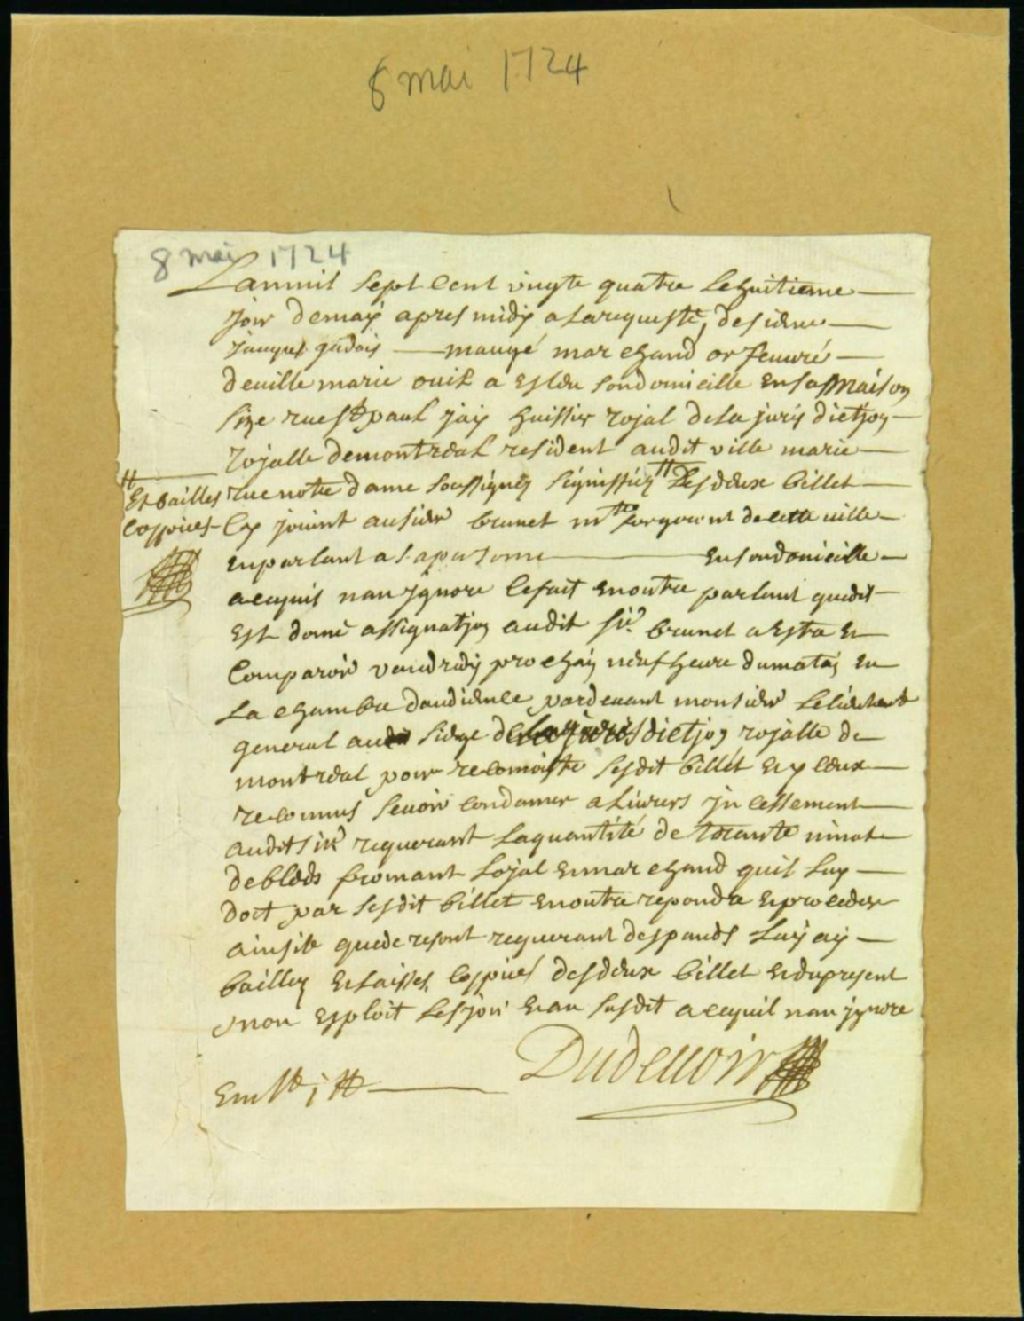 8 mai 1724
8 mai 1724
Lan mil sept cent vingte quatre le huitieme
jour de may apres midy a la requeste de sieur
Jacques gadois maugé marchand orfeuvre
de ville marie ou il a esleu son domicille en sa maison
size rue st paul jay huissier rojal de la jurisdictjon
rojalle de montreal resident audit ville marie
rue notre dame soussigné signiffiez les deux billet
Et bailles
coppies
cy joint au sieur brunet mtre de cette ville
en parlant a sa personne en son domicille
a ce quil nan jgnore le fait en outre parlant que dit
est donné assignatjon audit sir. brunet a estre et
comparoir vandredy prochain neuf heure du matin en
la chambre daudience pardevant monsieur le lieutenant
general au siege de la jurisdictjon rojalle de
montreal pour reconnoistre sesdit billet et y ceux
reconnus se voir condamner a livrer jncessement
audit sir requerant la quantité de trante minot
de bleds fromant lojal et marchand quil luy
doit par sesdit billet en outre repondre et proceder
ainsi que de raisont requerant despands luy ay
baillez et laissez coppies desdeux billet et du present
mon exploit les jour et an susdit a ce quil nan jgnore
Dudevoir